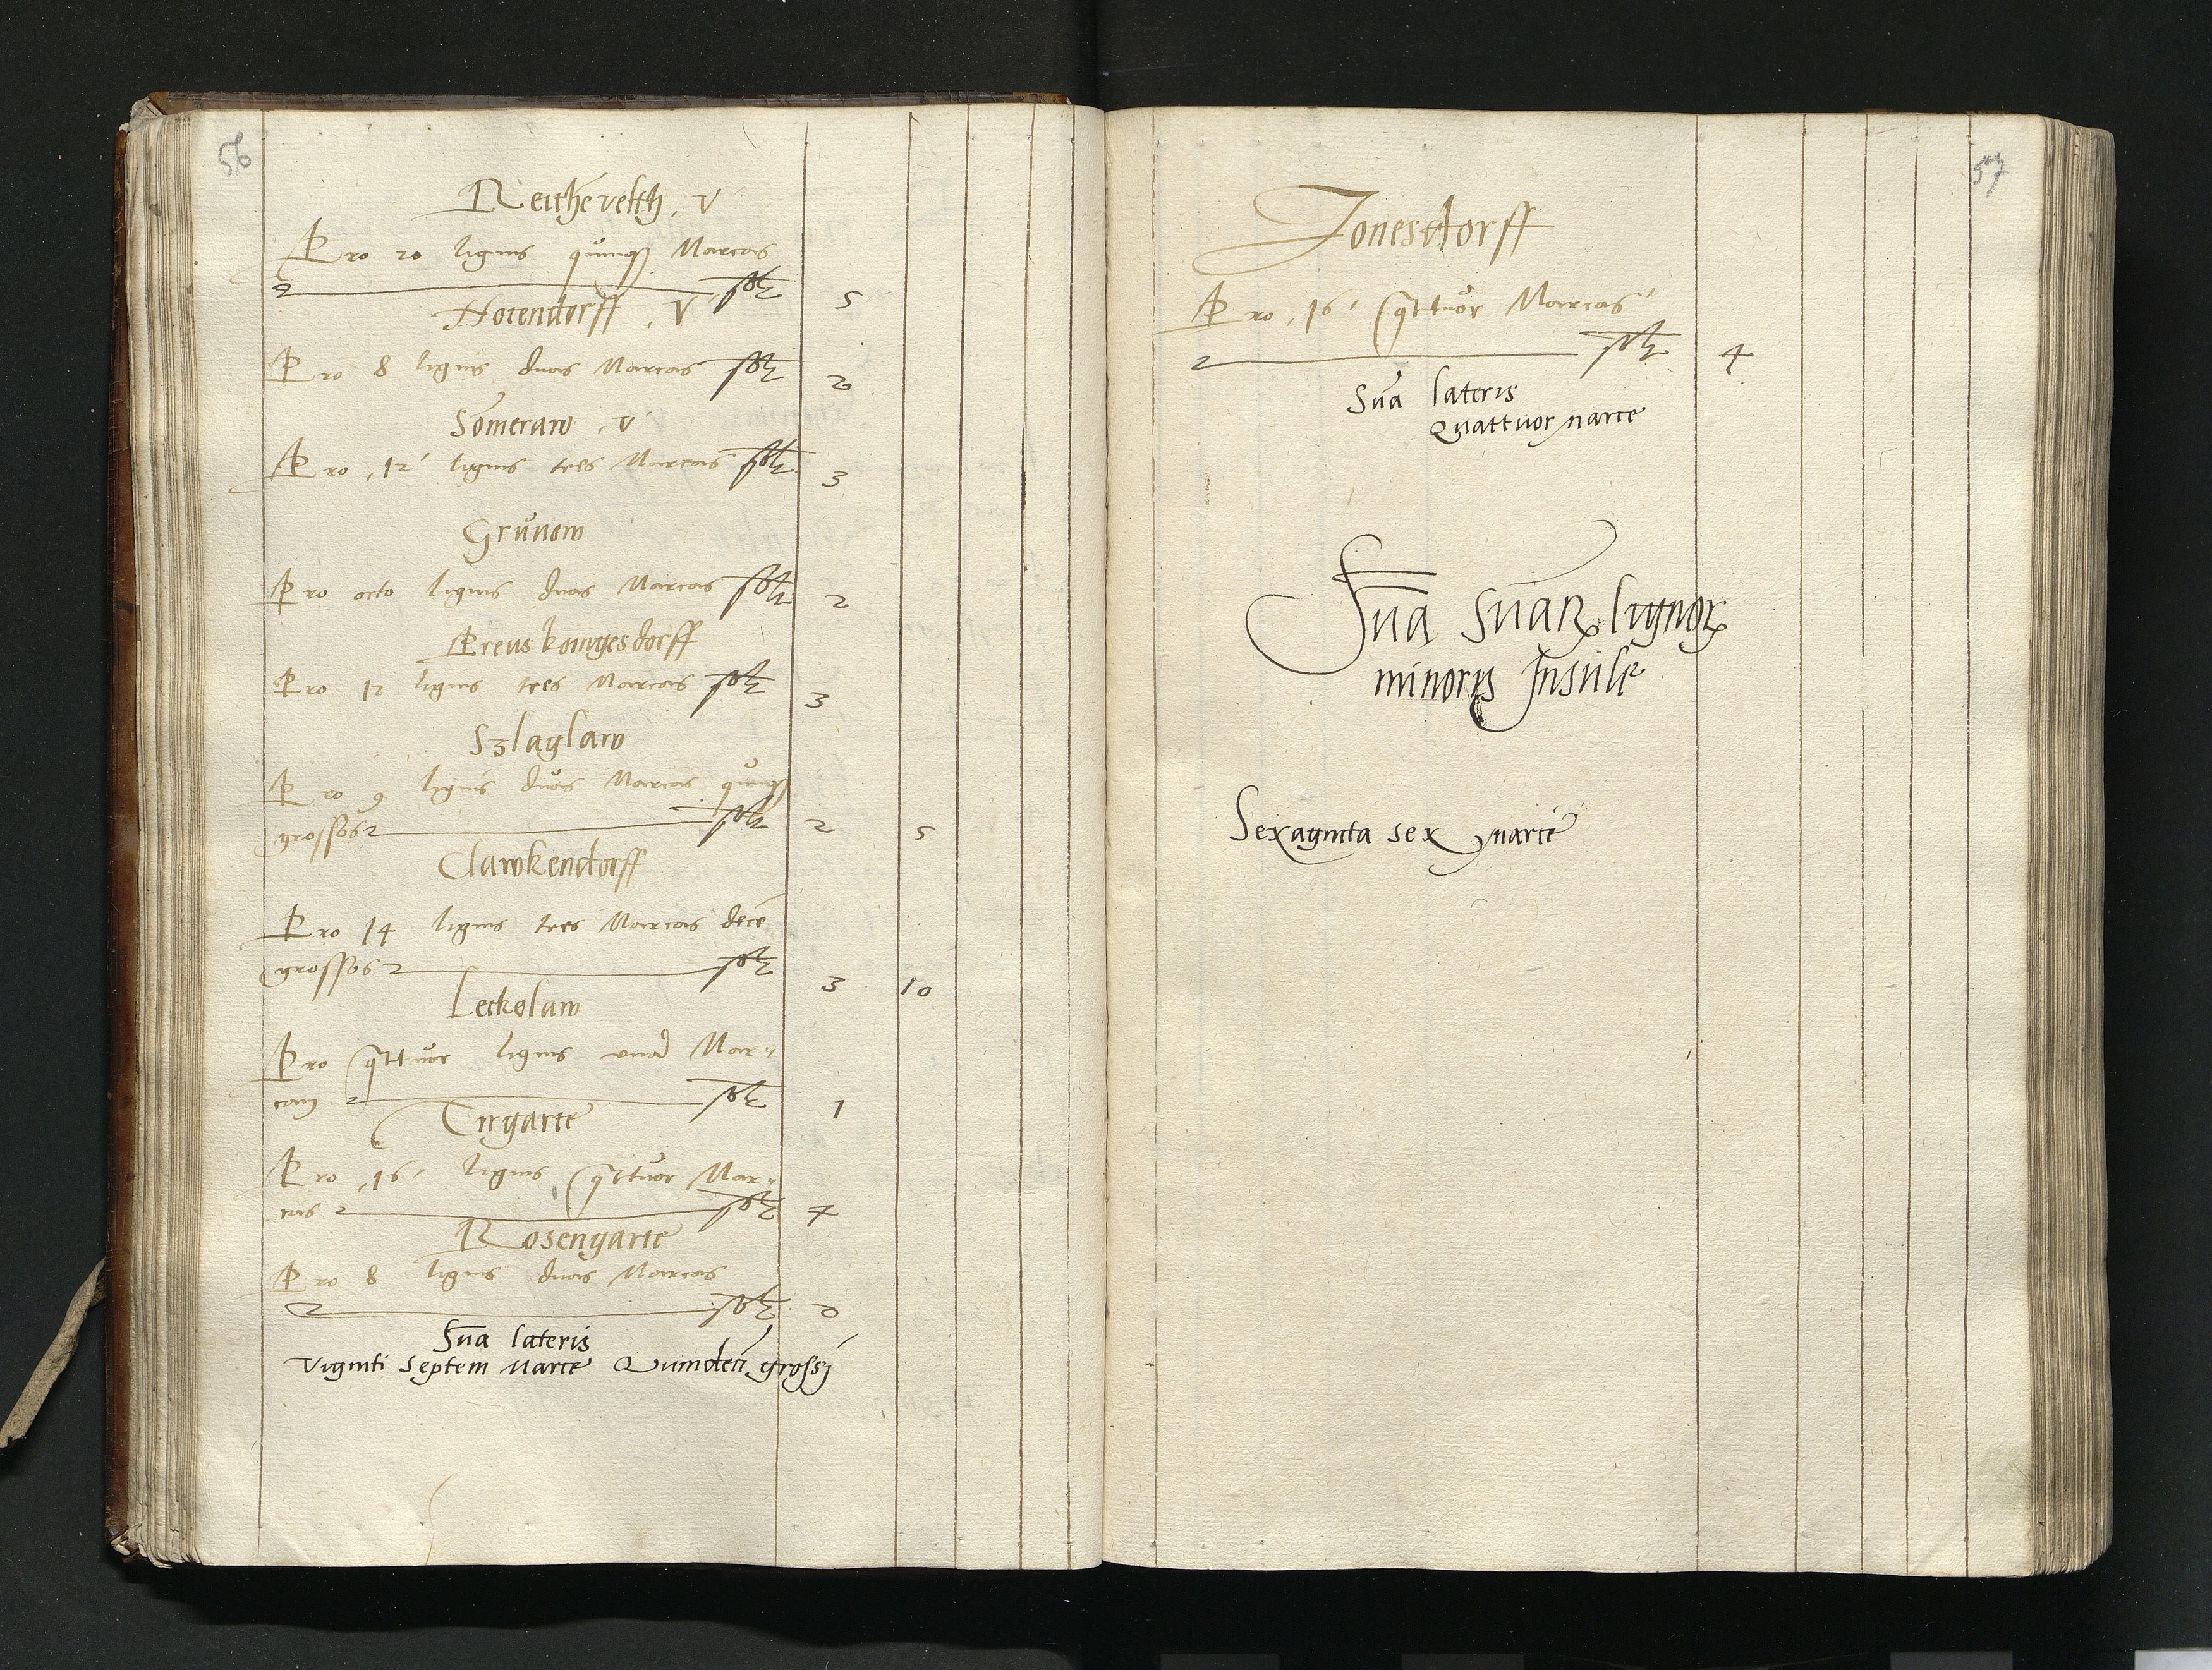 56
Reichēveltth . V
Pro 20 lignis quinq Marcas
solt 5
Hotendorff . V
Pro 8 lignis duas Marcas solt 2
Sōmeraw . V
Pro 12 lignis tres Marcas solt 3
Grunow
Pro octo lignis duas Marcas solt 2
Preuskonigesdorff
Pro 12 lignis tres Marcas solt 3
Szlaglaw
Pro 9 lignis duas Marcas quinq
grossos solt 2 5
Clawkendorff
Pro 14 lignis tres Marcas decē
grossos solt 3 10
Leckolaw
Pro qttuor lignis unā Mar„
cam solt 1
Tirgarte
Pro 16 lignis qttuor Mar„
cas solt 4
Rosengarte
Pro 8 lignis duas Marcas
solt 2
Sūa lateris
Viginti Septem Marce Quindeci grossj
57
Jonesdorff
Pro 16 qttuor Marcas
solt 4
Sūa lateris
Quattuor marce
Sūa Sūaꝝ lignoꝝ
minoris Insule
Sexaginta sex marce